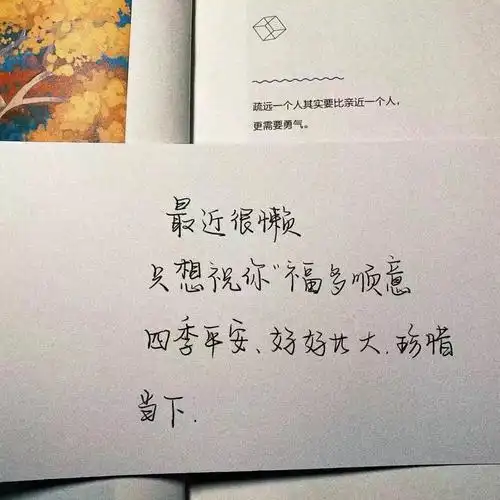 疏远一个人其实要比亲近一个人，
更需要勇气。
最近很懒
只想祝你“福多顺意
四季平安、好好长大.珍惜
当下.